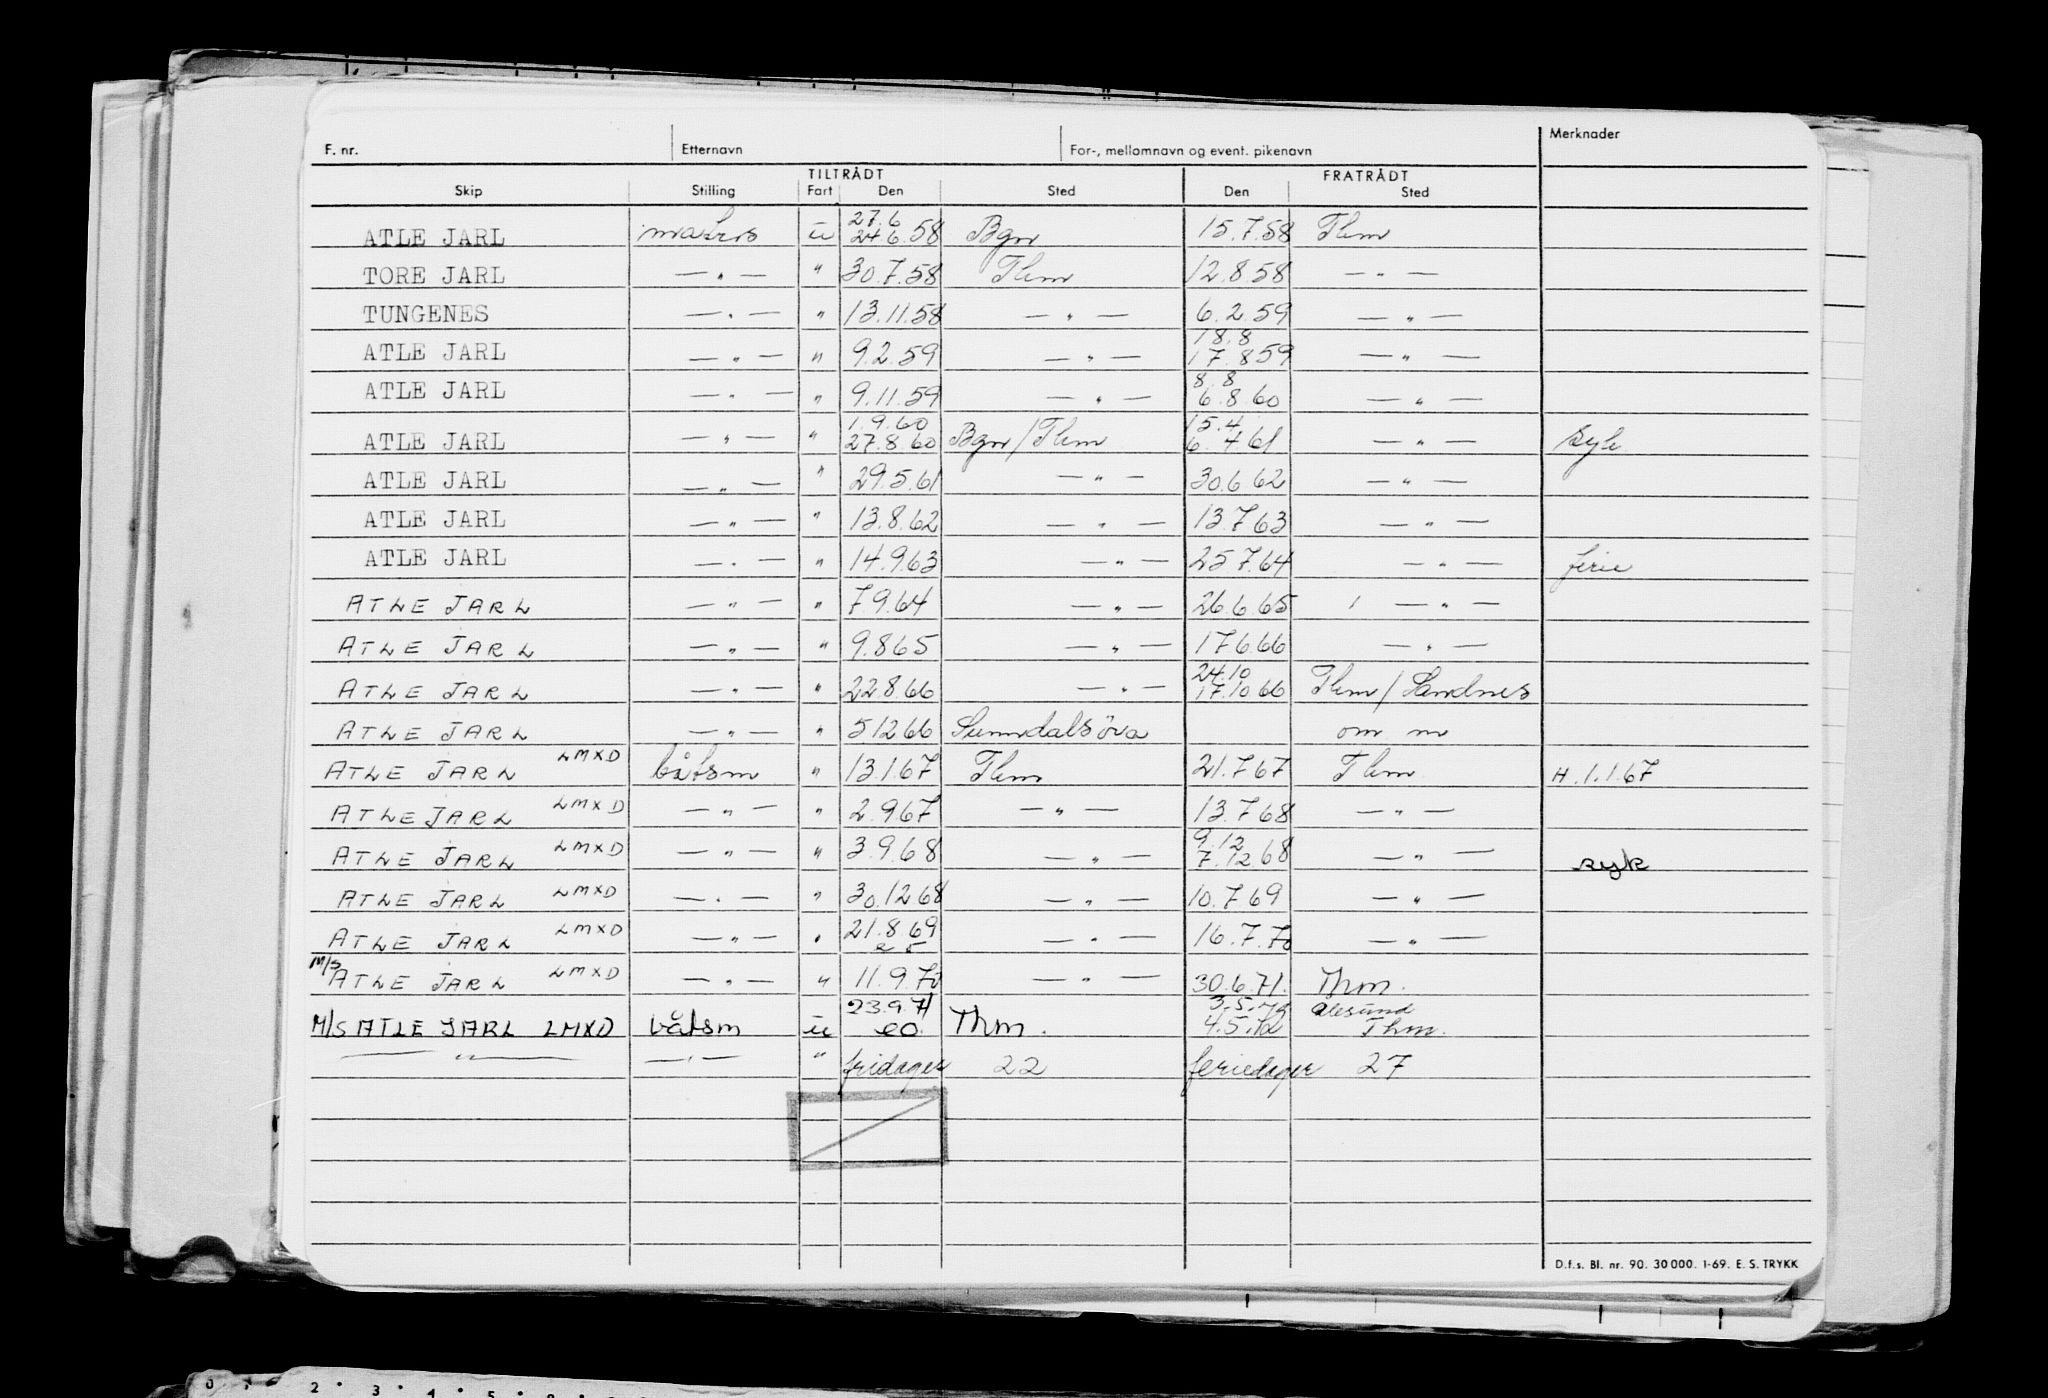 F. nr. Etternavn For-, mellomnavn og event. pikenavn Merknader
TILTRÅDT FRATRÅDT
Skip Stilling Fart Den Sted Den Sted
27.6
ATLE JARL matros u 24.6.58 Bgn 15.7.58 Thm
TORE JARL — " — " 30.7.58 Thm 12.8.58 — " —
TUNGENES — " — " 13.11.58 — " — 6.2.59 — " —
18.8
ATLE JARL — " — " 9.2.59 — " — 17.859 — " —
8.8
ATLE JARL — " — " 9.11.59 — " — 6.8.60 — " —
1.9.60 15.4
ATLE JARL — " — " 27.8.60 Bgn/Thm 6.4.61 — " — syk
ATLE JARL — " — " 29.5.61 — " — 30.6.62 — " —
ATLE JARL — " — " 13.8.62 — " — 13.7.63 — " —
ATLE JARL — " — " 14.9.63 — " — 25.7.64 — " — ferie
ATLE JARL — " — " 7.9.64 — " — 26.6.65 — " —
ATLE JARL — " — " 9.8.65 — " — 17.6.66 — " —
24.10
ATLE JARL — " — " 22.8.66 — " — 17.10.66 Thm/Sandnes
ATLE JARL — " — " 5.12.66 Sunndalsöra om m
ATLE JARL LMXD båtsm " 13.1.67 Thm 21.7.67 Thm H.1.1.67
ATLE JARL LMXD — " — " 2.9.67 — " — 13.7.68 — " —
9.12
ATLE JARL LMXD — " — " 3.9.68 — " — 7.12.68 — " — syk
ATLE JARL LMXD — " — " 30.12.68 — " — 10.7.69 — " —
ATLE JARL LMXD — " — " 21.8.69 — " — 16.7.70 — " —
M/S ATLE JARL LMXD — " — " 11.9.70 — " — 30.6.71. Thm.
23.9.71 3.5.72 Ålesund
M/S ATLE JARL LMXD båtsm u eo. Thm. 4.5.72 Thm.
— " — — " — " fridager 22 feriedager 27
D.f.s. Bl. nr. 90. 30 000. 1-69. E. S. TRYKK
0 1 2 3 4 5